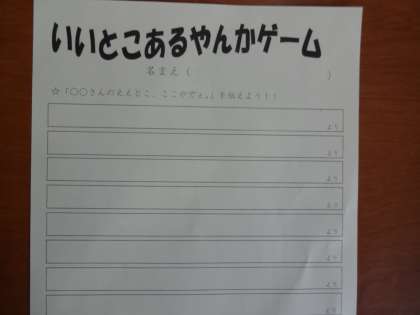 いいとこあるやんかゲーム
名まえ（　　　　　　　　　　）
☆「〇〇さんのええとこ、ここやでぇ。」を伝えよう！！
より
より
より
より
より
より
より
より